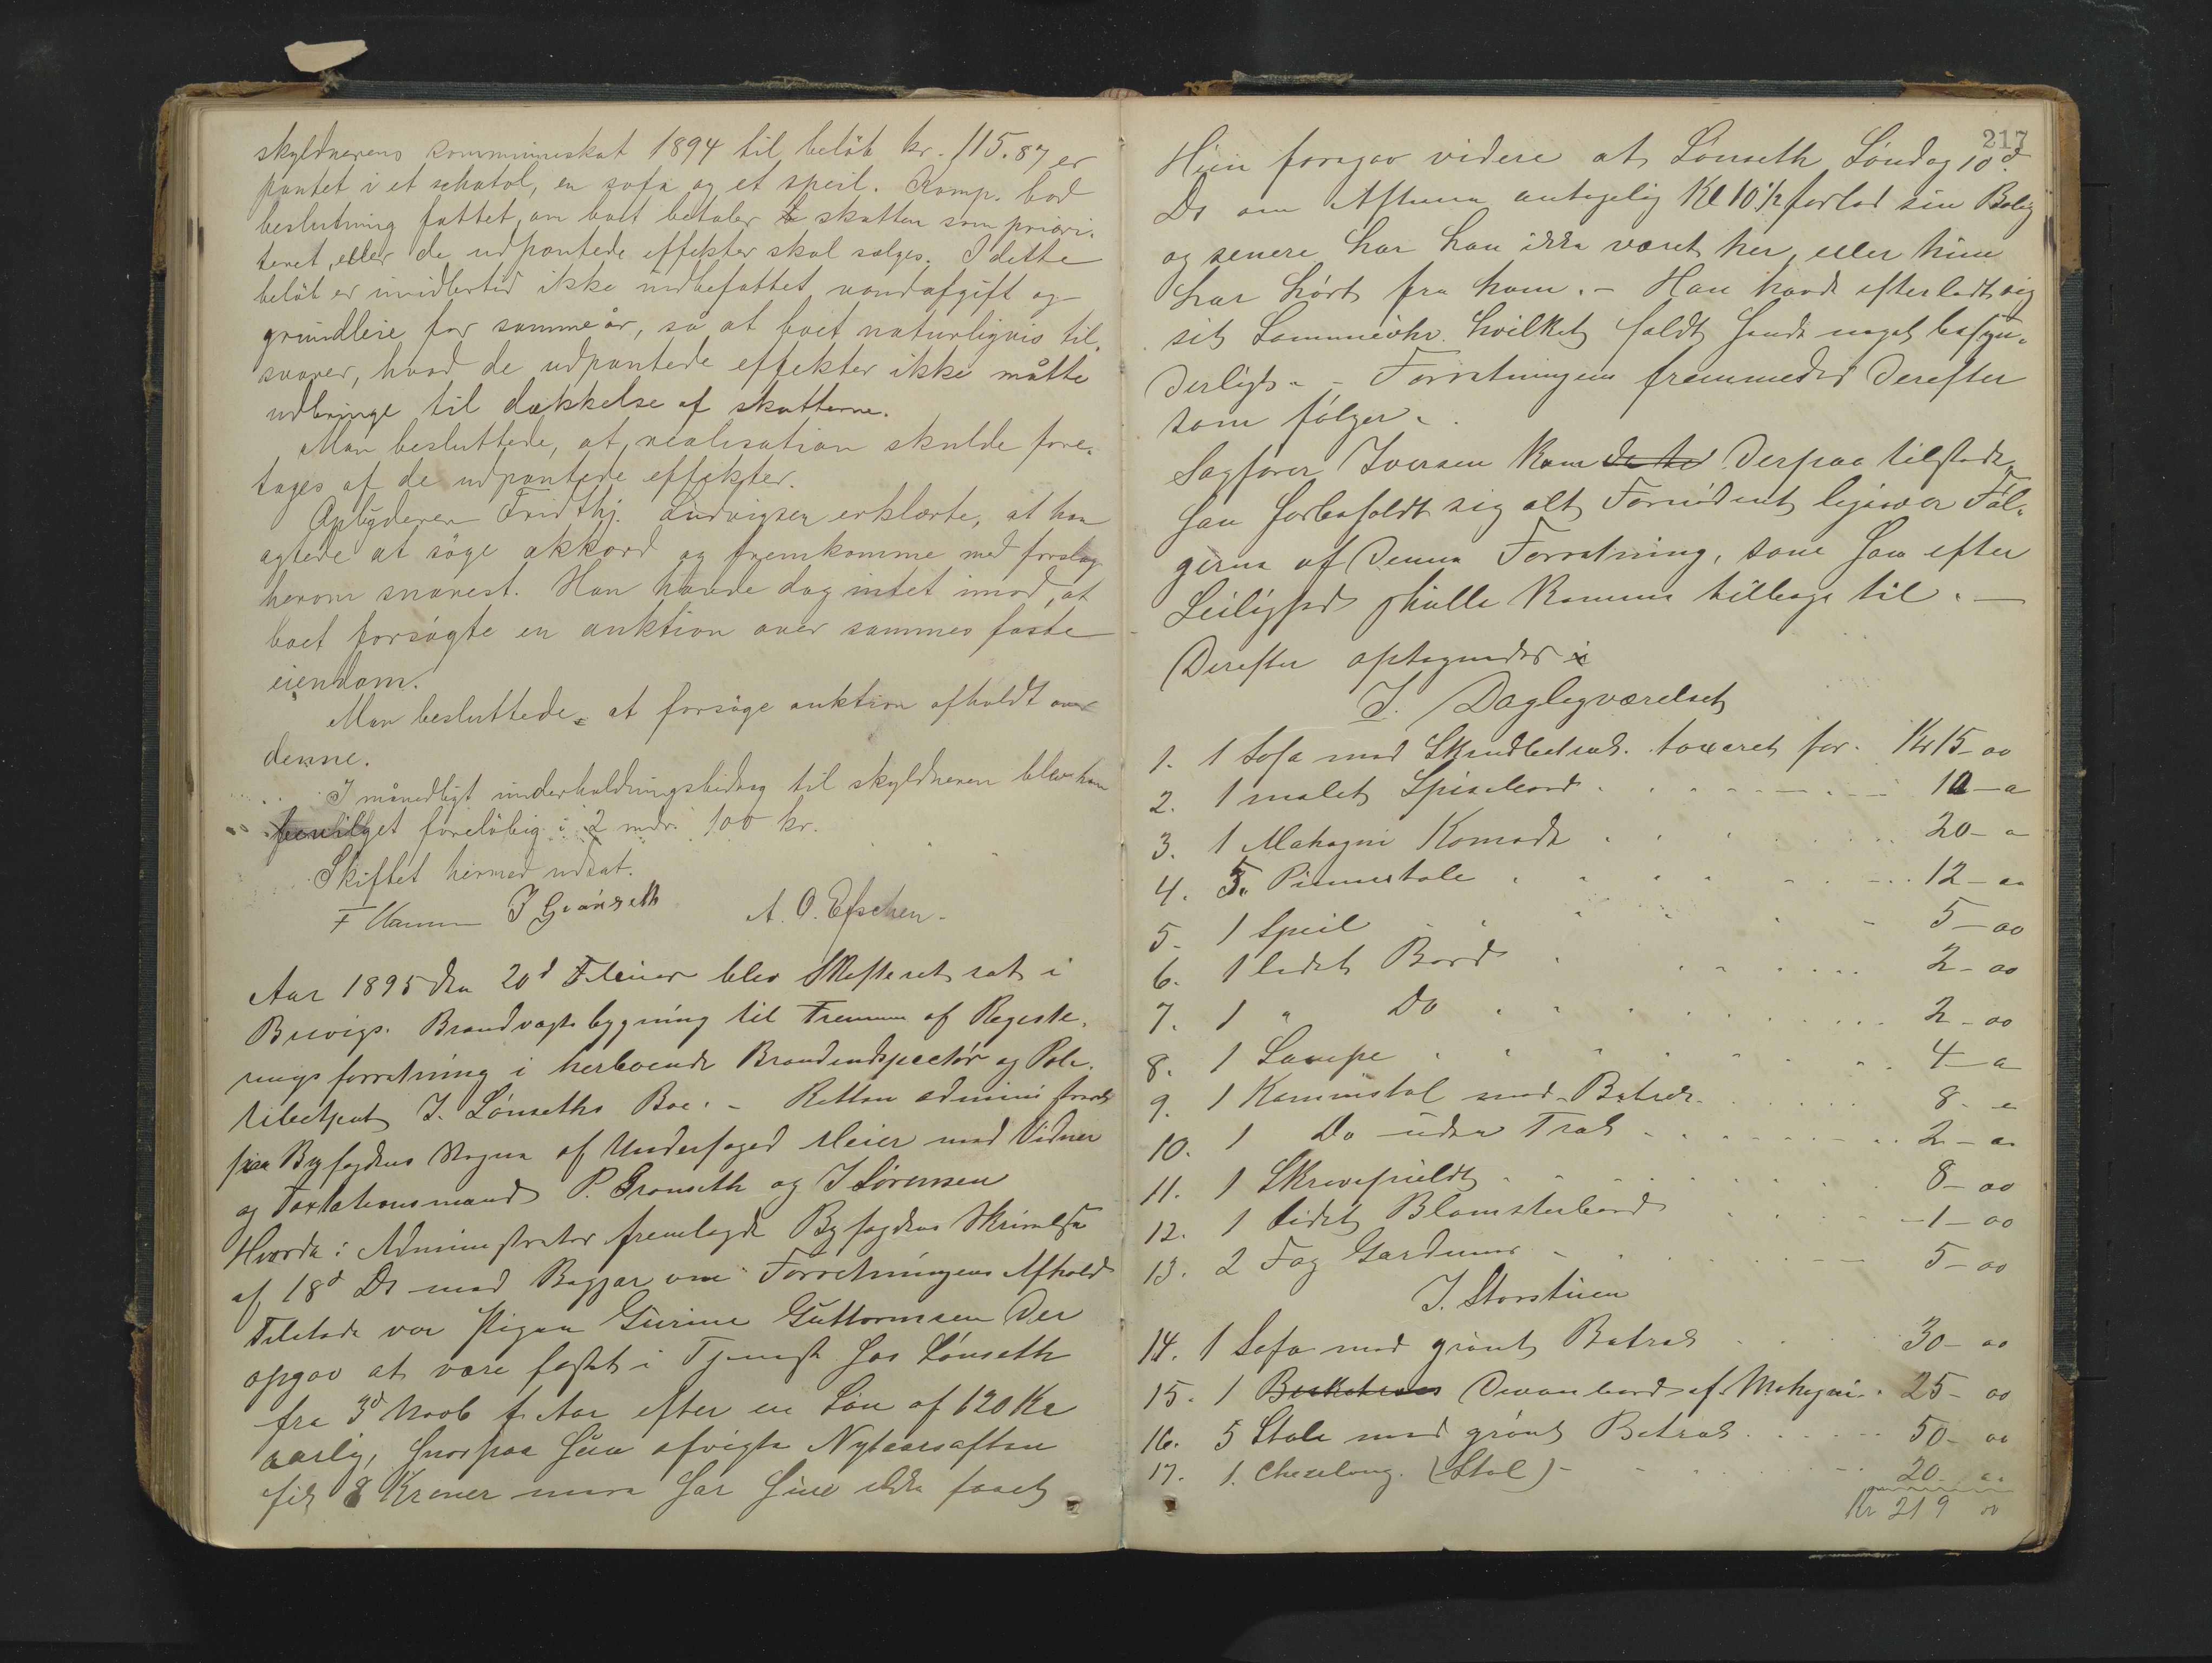 skyldnerens kommuneskat 1894 til beløb kr. 115.87 er
pantet i et schatol, en sofa og et speil. Komp. bad
beslutning fattet, om boet betaler skatten som priori-
teret, eller de udpantede effekter skal sælges. I dette
beløb er imidlertid ikke indbefattet vandafgift og
grundleie for samme år, så at boet naturligvis til-
svarer, hvad de udpantede effekter ikke måtte
udbringe til dækkelse af skatterne.
Man besluttede, at realisation skulde fore-
tages af de udpantede effekter.
Opbyderen Fridthj. Ludvigsen erklærte, at han
agtede at søge akkord og fremkomme med forslag
herom snarest. Han havde dog intet imod, at
boet forsøgte en auktion over sammes faste
eiendom.
Man besluttede at forsøge auktion afholdt over
denne.
I månedligt underholdningsbidrag til skyldneren blev ham
bevilget foreløbig i 2 mdr. 100 kr.
Skiftet hermed udsat.
F J Grønseth A. O. Efschen.
Aar 1895 den 20d Februar blev Skifteret sat i
Brevigs Brandvagtsbygning til Fremme af Registe-
ringsforretning i herboende Brandinspectør og Poli-
tibetjent J. Lønseths Boe. - Retten administreret
paa Byfogdens Vegne af Underfoged Meier med Vidner
og Taxtationsmænd P. Grønseth og J Sørensen
Hvorda: Administrator fremlagde Byfogdens Skrivelse
af 18d Ds med Begjær om Forretningens Afhold
Tilstede var Pigen Gurine Guttormsen der
opgav at være fæstet i Tjeneste hos Lønseth
fra 3d Novb f. Aar efter en Løn af 120 Kr
aarlig, hvorpaa hun afvigte Nytaarsaften
fik 8 Kroner mere har hun ikke faaet
217
Hun foregav videre at Lønseth Søndag 10d.
Ds om Aftenen antagelig Kl 10½ forlod sin Bolig
og senere har han ikke været her, eller hun
har hørt fra ham. - Han havde efterladt sig
sit Lommeuhr hvilket faldt hende noget besyn-
derligt. - Forretningen fremmedes derefter
som følger.
Sagfører Iversen kom derpaa tilstede,
han forbeholdt sig alt Fornødent ligeover Føl-
gerne af denne Forretning, som han efter
Leilighed skulle komme tilbage til. —
Derefter optegnedes
I. Dagligværelset
1. 1 Sofa med Skindbetræk taxeret for Kr 15 - oo
2. 1 malet Spisebord 10 - o
3. 1 Mahogni Komode 20 - o
4. 5 Pinnestole 12 - oo
5. 1 Speil 5 - oo
6. 1 lidet Bord 2 - oo
7. 1 " Do 2 - oo
8. 1 Lampe 4 - o
9. 1 Kammstol med Betræk 8 - o
10. 1 Do uden Træk 2 - o
11. 1 Skrivepuldt 8 - oo
12. 1 lidet Blomsterbord 1 - oo
13. 2 Fag Gardiner 5 - oo
I. Storstuen
14. 1 Sofa med grønt Betræk 30 - oo
15. 1 Divanbord af Mahogni 25 - oo
16. 5 Stole med grønt Betræk 50 - oo
17. 1. Cheselong. (Stol) 20 - oo
Kr 219 oo